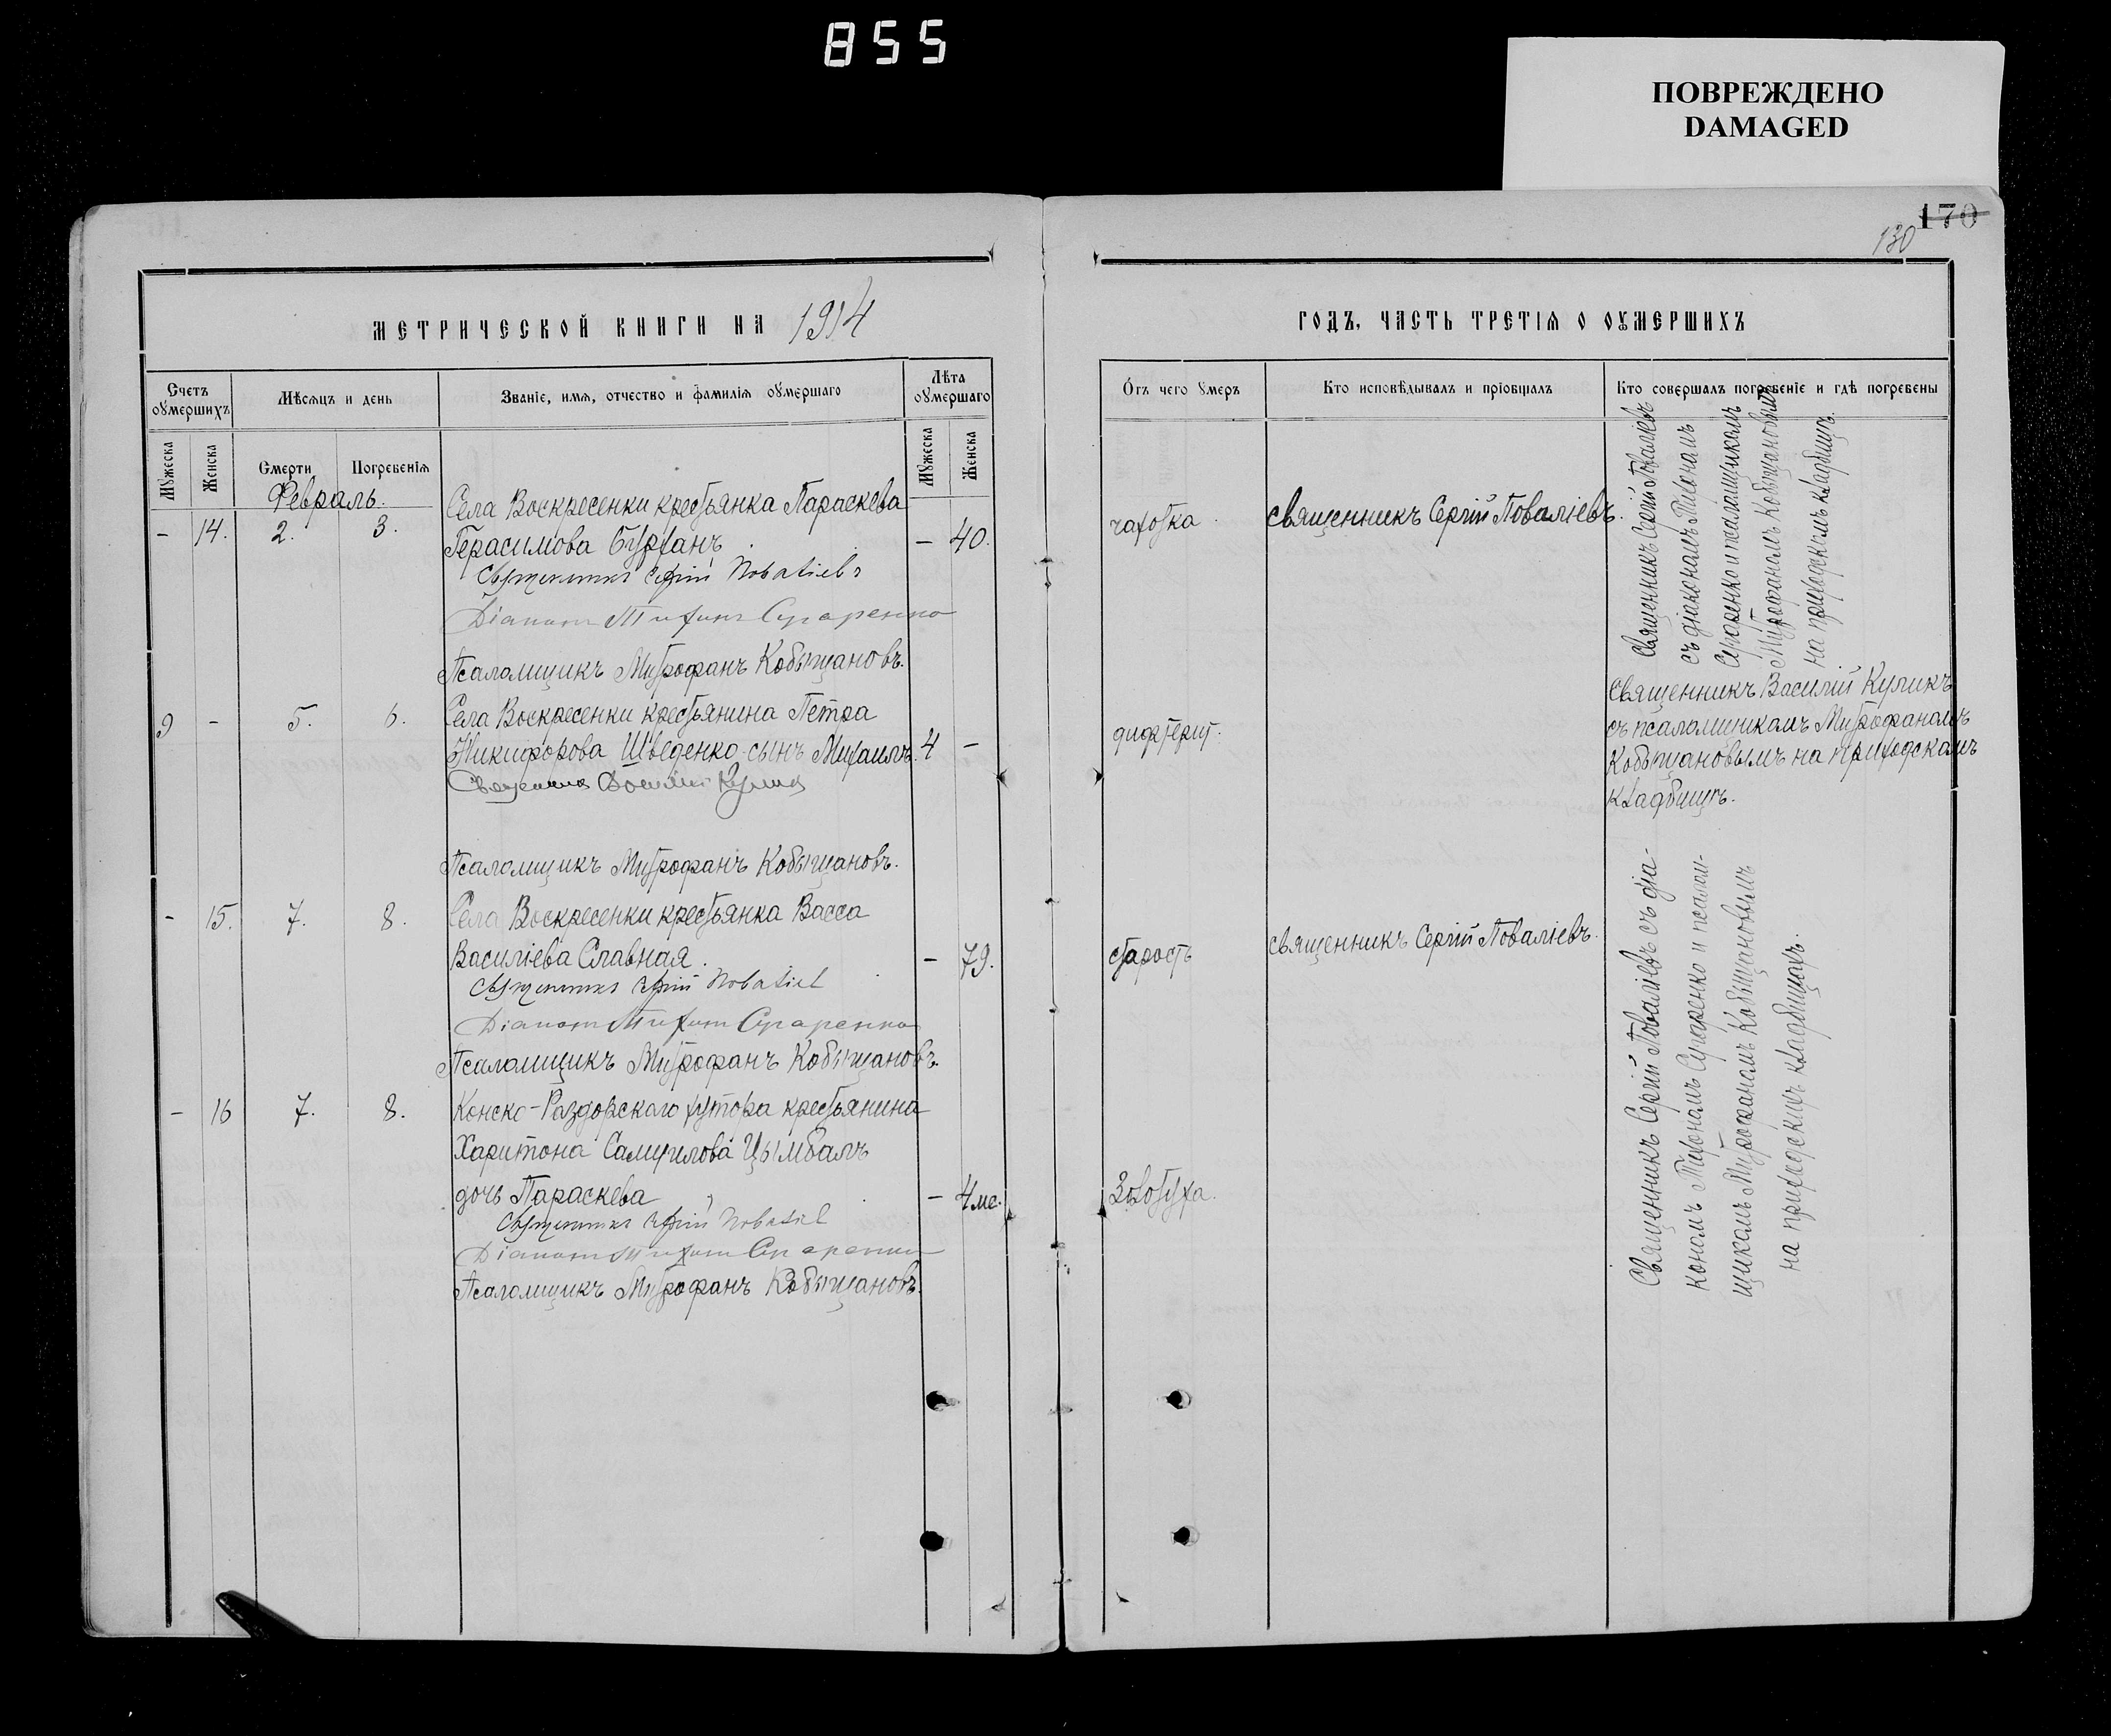 855
ПОВРЕЖДЕНО
DAMAGED
170
130
МЕТРИЧЕСКОЙ КНИГИ НА 1914
Счетъ оумершихъ
Мѣсяцъ и день
Званіе, имя, отчество и фамилія оумершаго
Лѣта оумершаго
Мужеска
Женска
Смерти
Погребенія
Мужеска
Женска
Февраль.
Села Воскресенки крестьянка Параскева
- 14. 2. 3. Герасимова Бурханъ. - 40.
Священникъ Сергій Поваліевъ
Діаконъ Тихонъ Сухаренко
Псаломщикъ Митрофанъ Кобыщановъ.
9 - 5. 6. Села Воскресенки крестьянина Петра
Никифорова Шведенко сынъ Михаилъ. 4 -
Священникъ Василій Куликъ
Псаломщикъ Митрофанъ Кобыщановъ.
- 15. 7. 8. Села Воскресенки крестьянка Васса
Василіева Славная. - 79.
Священникъ Сергій Поваліев
Діаконъ Тихонъ Сухаренко
Псаломщикъ Митрофанъ Кобыщановъ.
- 16 7. 8. Конско-Раздорскаго хутора крестьянина
Харитона Самуилова Цымбалъ
дочь Параскева - 4 ме.
Священникъ Сергій Поваліев
Діаконъ Тихонъ Сухаренко
Псаломщикъ Митрофанъ Кобыщановъ.
ГОДЪ, ЧАСТЬ ТРЕТІЯ О ОУМЕРШИХЪ
Отъ чего умеръ
Кто исповѣдывалъ и пріобщалъ
Кто совершалъ погребеніе и гдѣ погребены
чахотка.
священникъ Сергій Поваліевъ.
Священникъ Сергій Поваліевъ
съ діакономъ Тихономъ
Сухаренко и псаломщикомъ
Митрофаномъ Кобыщановымъ
на приходскомъ кладбищѣ.
дифтерит.
священникъ Василій Куликъ
съ псаломщикомъ Митрофаномъ
Кобыщановымъ на приходскомъ
кладбищѣ.
старость
священникъ Сергій Поваліевъ.
Золотуха.
Священникъ Сергій Поваліевъ съ діа-
кономъ Тихономъ Сухаренко и псалом-
щикомъ Митрофаномъ Кобыщановымъ
на приходскихъ кладбищахъ.